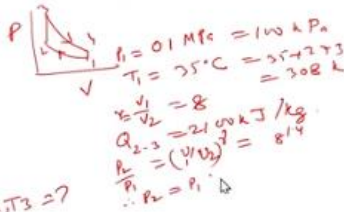 P
V
P₁ = 01 MPa = 100 kPa
T₁ = 35°C = 35+273
= 308 k
r = V₁/V₂ = 8
Q₂₋₃ = 2100 kJ/kg
P₂/P₁ = (V₁/V₂)^γ = 8^1.4
∴ P₂ = P₁
T3 = ?